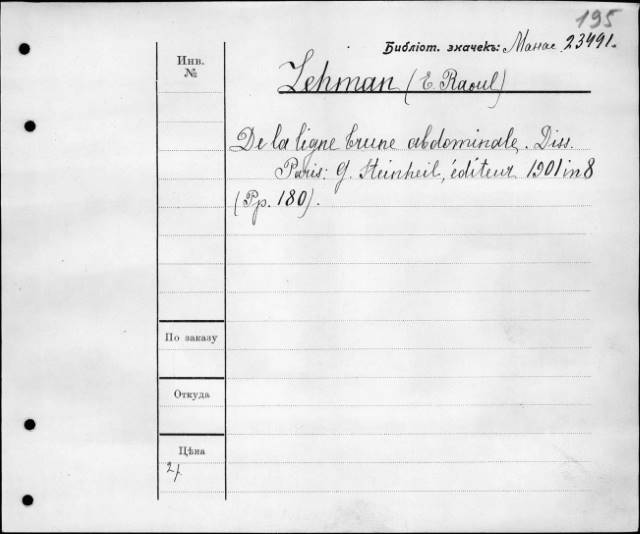 195
Библіот. значекъ: Манас. 23491.
Инв.
№
Lehman (E. Raoul)
De la ligne brune abdominale. Diss.
Paris: G. Steinheil, éditeur 1901 in 8
(Pp. 180).
По заказу
Откуда
Цѣна